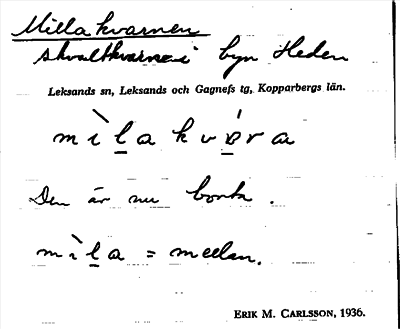 Milla kvarnen
skvaltkvarn i byn Heden
Leksands sn, Leksands och Gagnefs tg, Kopparbergs län.
mìl̠a kva̠ra
Den är nu borta.
mìl̠a = mellan.
ERIK M. CARLSSON, 1936.